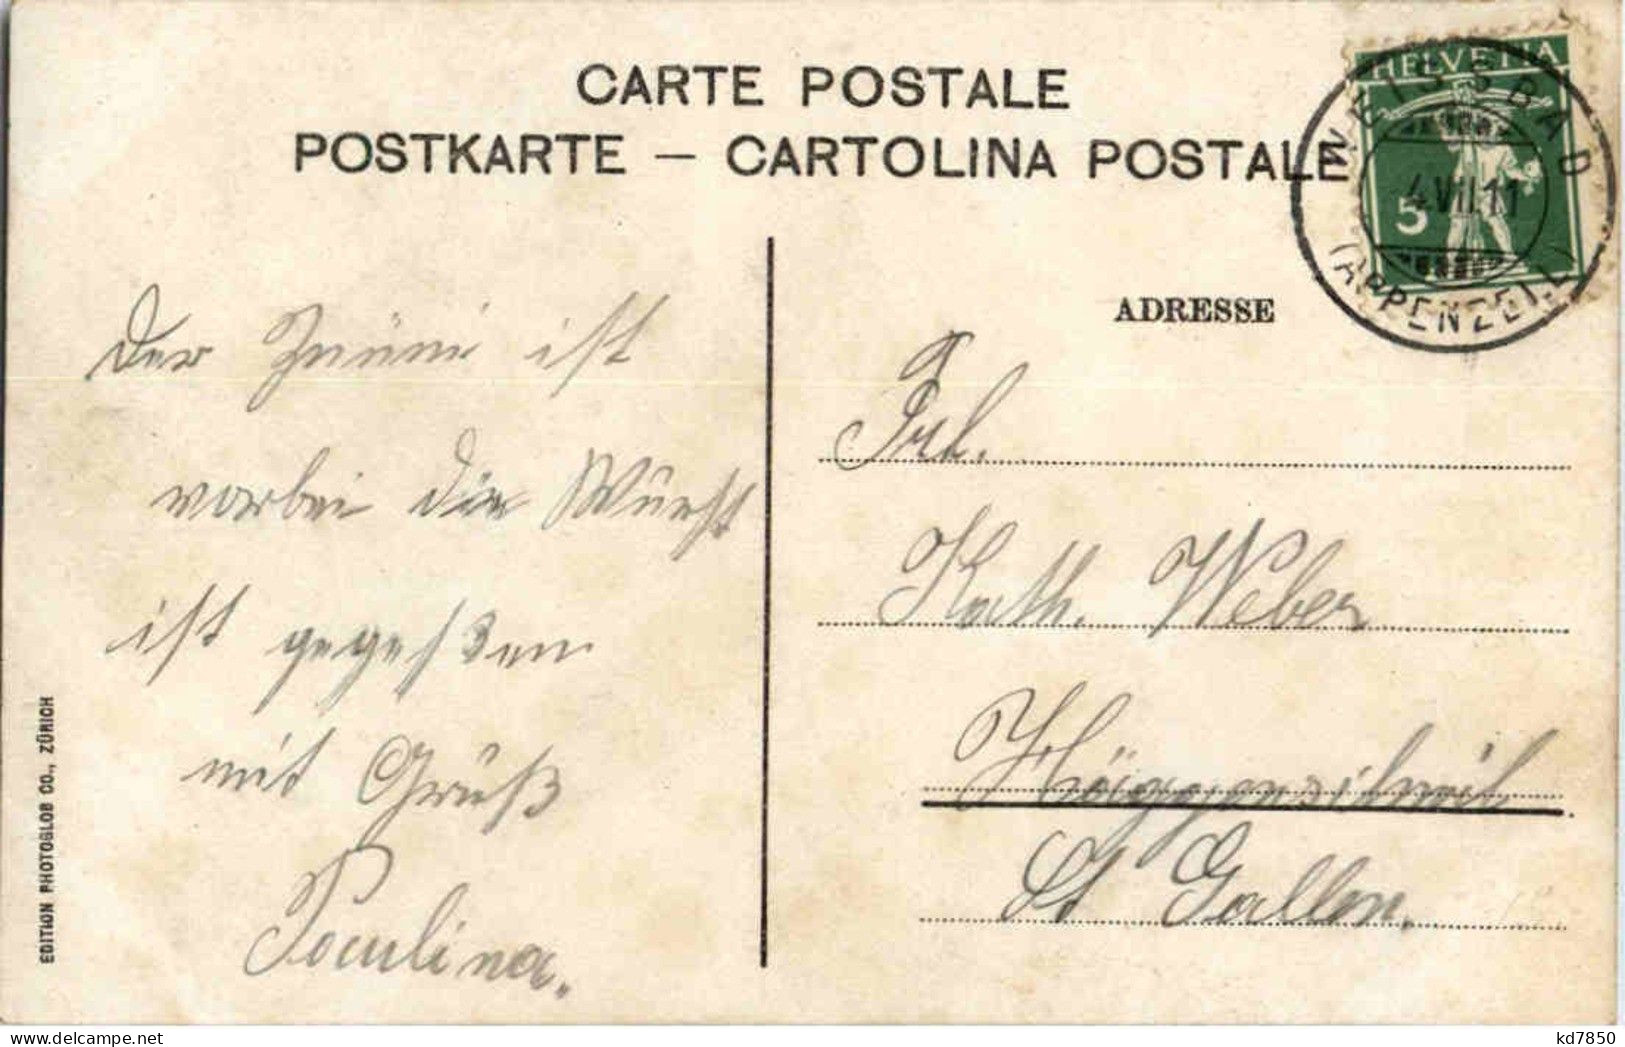 CARTE POSTALE
POSTKARTE — CARTOLINA POSTALE
HELVETIA
5
WEISSBAD
4.VII.11
(APPENZELL)
ADRESSE
Der Znüni ist
vorbei die Würst
ist gegeßen
mit Grüß
Paulina.
Frl.
Kath. Weber
Häggenschwil
St Gallen.
EDITION PHOTOGLOB CO., ZÜRICH
kd7850